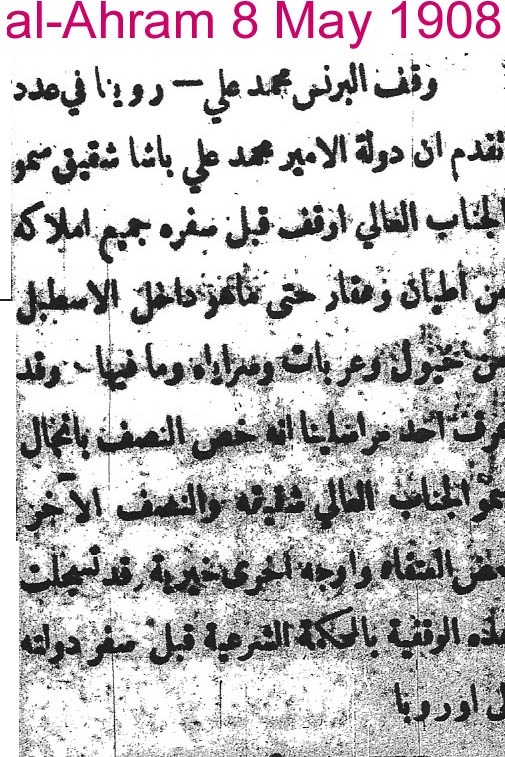 al-Ahram 8 May 1908
وقف البرنس محمد علي — روينا في عدد
تقدم ان دولة الامير محمد علي باشا شقيق سمو
الجناب العالي اوقف قبل سفره جميع املاكه
من اطيان وعقار حتى ما هو داخل الاسطبل
من خيول وعربات وسراياه وما فيها - وقد
عرف احد مراسلينا انه خص النصف بانجال
سمو الجناب العالي شقيقه والنصف الآخر
واوجه اخرى خيرية وقد تسجلت
هذه الوقفية بالمحكمة الشرعية قبل سفر دولته
اوروبا